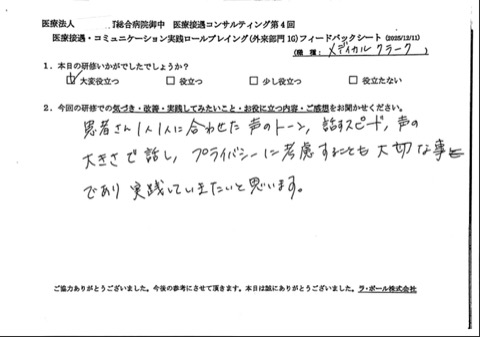 医療法人 総合病院御中 医療接遇コンサルティング第4回
医療接遇・コミュニケーション実践ロールプレイング(外来部門1G)フィードバックシート (2025/12/11)
(職 種: メディカルクラーク )
1. 本日の研修いかがでしたでしょうか?
☑ 大変役立つ □ 役立つ □ 少し役立つ □ 役立たない
2. 今回の研修での気づき・改善・実践してみたいこと・お役に立つ内容・ご感想をお聞かせください。
患者さん1人1人に合わせた声のトーン, 話すスピード, 声の
大きさで話し, プライバシーに考慮することも大切な事
であり実践していきたいと思います。
ご協力ありがとうございました。今後の参考にさせて頂きます。本日は誠にありがとうございました。ラ・ポール株式会社